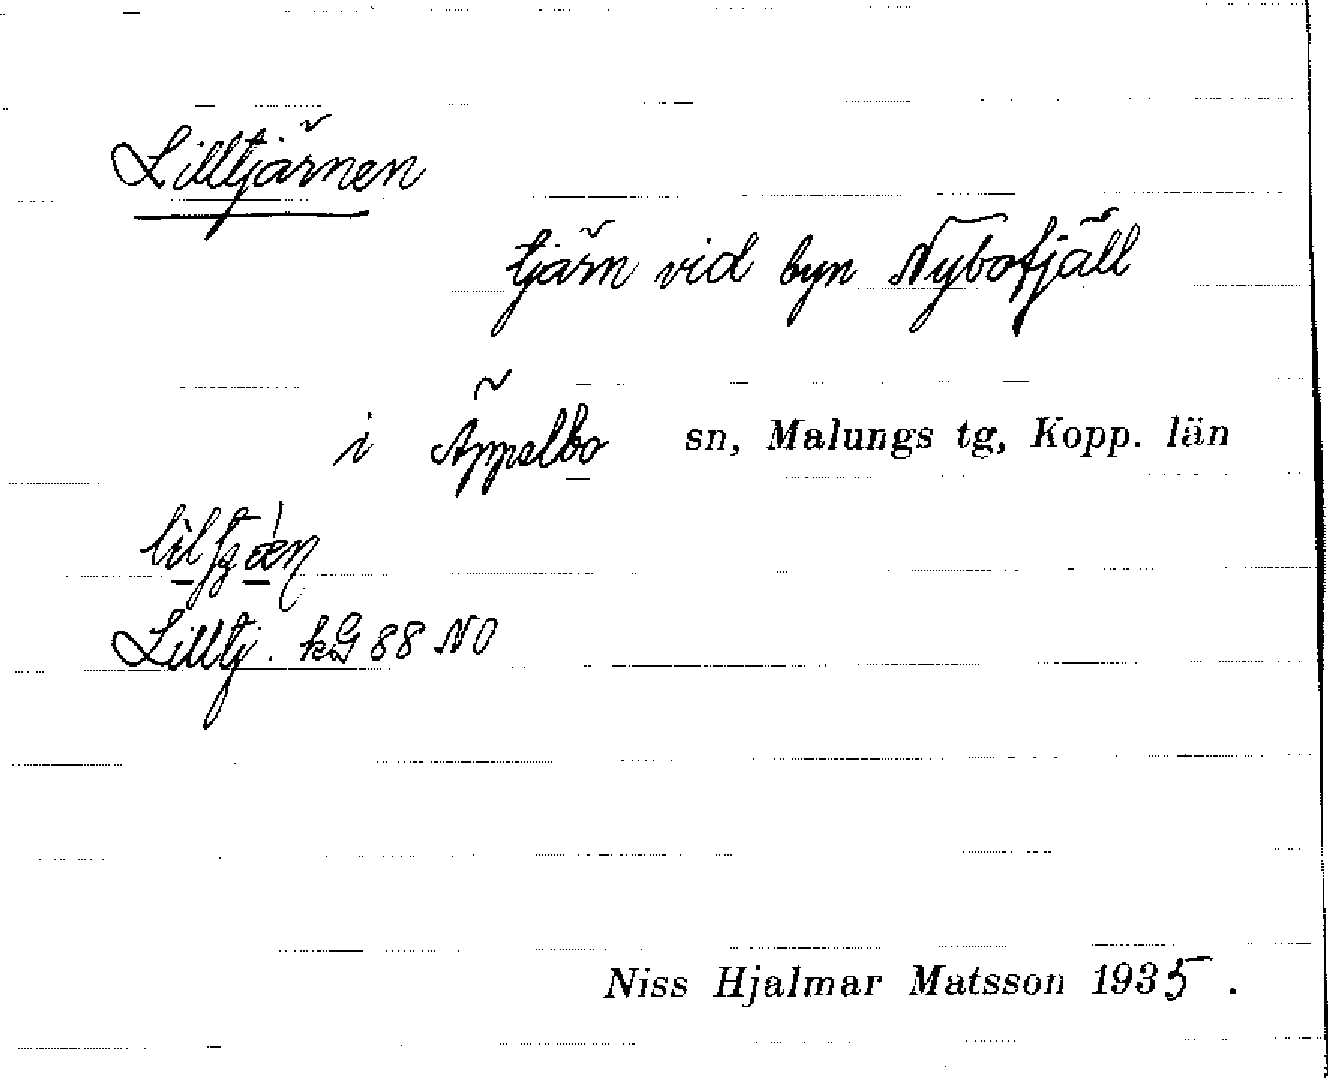 Lilltjärnen
tjärn vid byn Nybofjäll
i Äppelbo sn, Malungs tg, Kopp. län
Lilltj. kG 88 NO
Niss Hjalmar Matsson 1935.